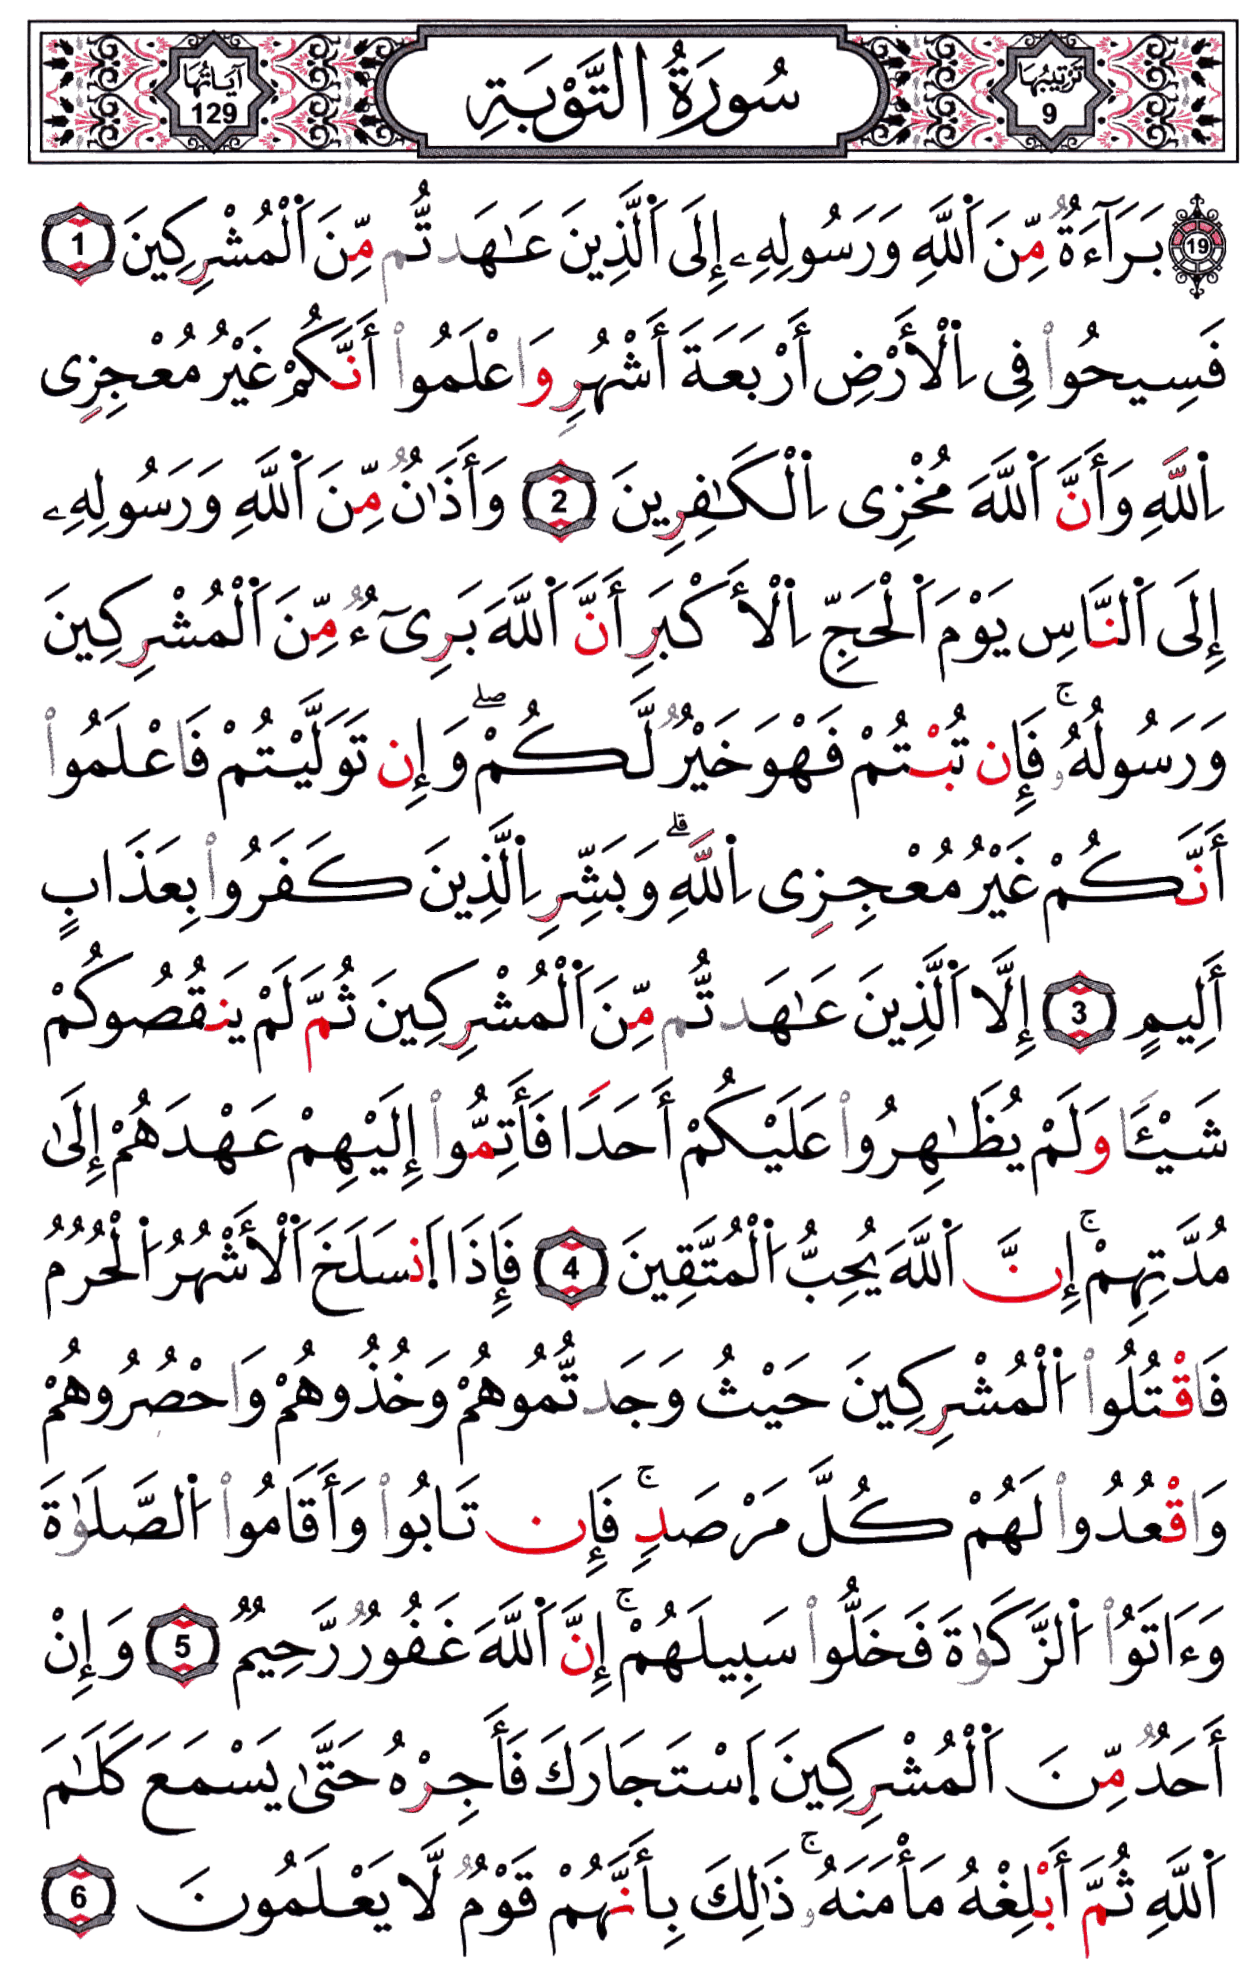 تَرْتِيبُهَا 9 سُورَةُ التَّوْبَةِ آيَاتُهَا 129
19 بَرَآءَةٌ مِّنَ اَ۬للَّهِ وَرَسُولِهِۦٓ إِلَى اَ۬لَّذِينَ عَٰهَدتُّم مِّنَ اَ۬لْمُشْرِكِينَ 1
فَسِيحُواْ فِى اِ۬لْأَرْضِ أَرْبَعَةَ أَشْهُرٍ وَاعْلَمُواْ أَنَّكُمْ غَيْرُ مُعْجِزِى
اِ۬للَّهِ وَأَنَّ اَ۬للَّهَ مُخْزِى اِ۬لْكَٰفِرِينَ 2 وَأَذَٰنٌ مِّنَ اَ۬للَّهِ وَرَسُولِهِۦٓ
إِلَى اَ۬لنَّاسِ يَوْمَ اَ۬لْحَجِّ اِ۬لْأَكْبَرِ أَنَّ اَ۬للَّهَ بَرِىٓءٌ مِّنَ اَ۬لْمُشْرِكِينَ
وَرَسُولُهُۥۚ فَإِن تُبْتُمْ فَهْوَ خَيْرٌ لَّكُمْۖ وَإِن تَوَلَّيْتُمْ فَاعْلَمُواْ
أَنَّكُمْ غَيْرُ مُعْجِزِى اِ۬للَّهِۗ وَبَشِّرِ اِ۬لَّذِينَ كَفَرُواْ بِعَذَابٍ
أَلِيمٍ 3 إِلَّا اَ۬لَّذِينَ عَٰهَدتُّم مِّنَ اَ۬لْمُشْرِكِينَ ثُمَّ لَمْ يَنقُصُوكُمْ
شَيْـًٔا وَلَمْ يُظَٰهِرُواْ عَلَيْكُمْ أَحَدًا فَأَتِمُّواْ إِلَيْهِمْ عَهْدَهُمْ إِلَىٰ
مُدَّتِهِمْۚ إِنَّ اَ۬للَّهَ يُحِبُّ اُ۬لْمُتَّقِينَ 4 فَإِذَا اَ۪نسَلَخَ اَ۬لْأَشْهُرُ اُ۬لْحُرُمُ
فَاقْتُلُواْ اُ۬لْمُشْرِكِينَ حَيْثُ وَجَدتُّمُوهُمْ وَخُذُوهُمْ وَاحْصُرُوهُمْ
وَاقْعُدُواْ لَهُمْ كُلَّ مَرْصَدٍۚ فَإِن تَابُواْ وَأَقَامُواْ اُ۬لصَّلَوٰةَ
وَءَاتَوُاْ اُ۬لزَّكَوٰةَ فَخَلُّواْ سَبِيلَهُمْۚ إِنَّ اَ۬للَّهَ غَفُورٌ رَّحِيمٌ 5 وَإِنْ
أَحَدٌ مِّنَ اَ۬لْمُشْرِكِينَ اَ۪سْتَجَارَكَ فَأَجِرْهُ حَتَّىٰ يَسْمَعَ كَلَٰمَ
اَ۬للَّهِ ثُمَّ أَبْلِغْهُ مَأْمَنَهُۥۚ ذَٰلِكَ بِأَنَّهُمْ قَوْمٌ لَّا يَعْلَمُونَ 6